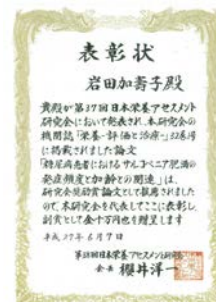 表彰状
岩田加壽子殿
貴殿が第37回日本栄養アセスメント
研究会において発表され、本研究会の
機関誌「栄養-評価と治療-」32巻号
に掲載されました論文
「糖尿病患者におけるサルコペニア肥満の
発症頻度と加齢との関連」は、
研究会奨励賞論文として推薦されました
ので、本研究会を代表してここに表彰し
副賞として金十万円也を贈呈します
平成27年6月7日
第38回日本栄養アセスメント研究会
会長 櫻井洋一